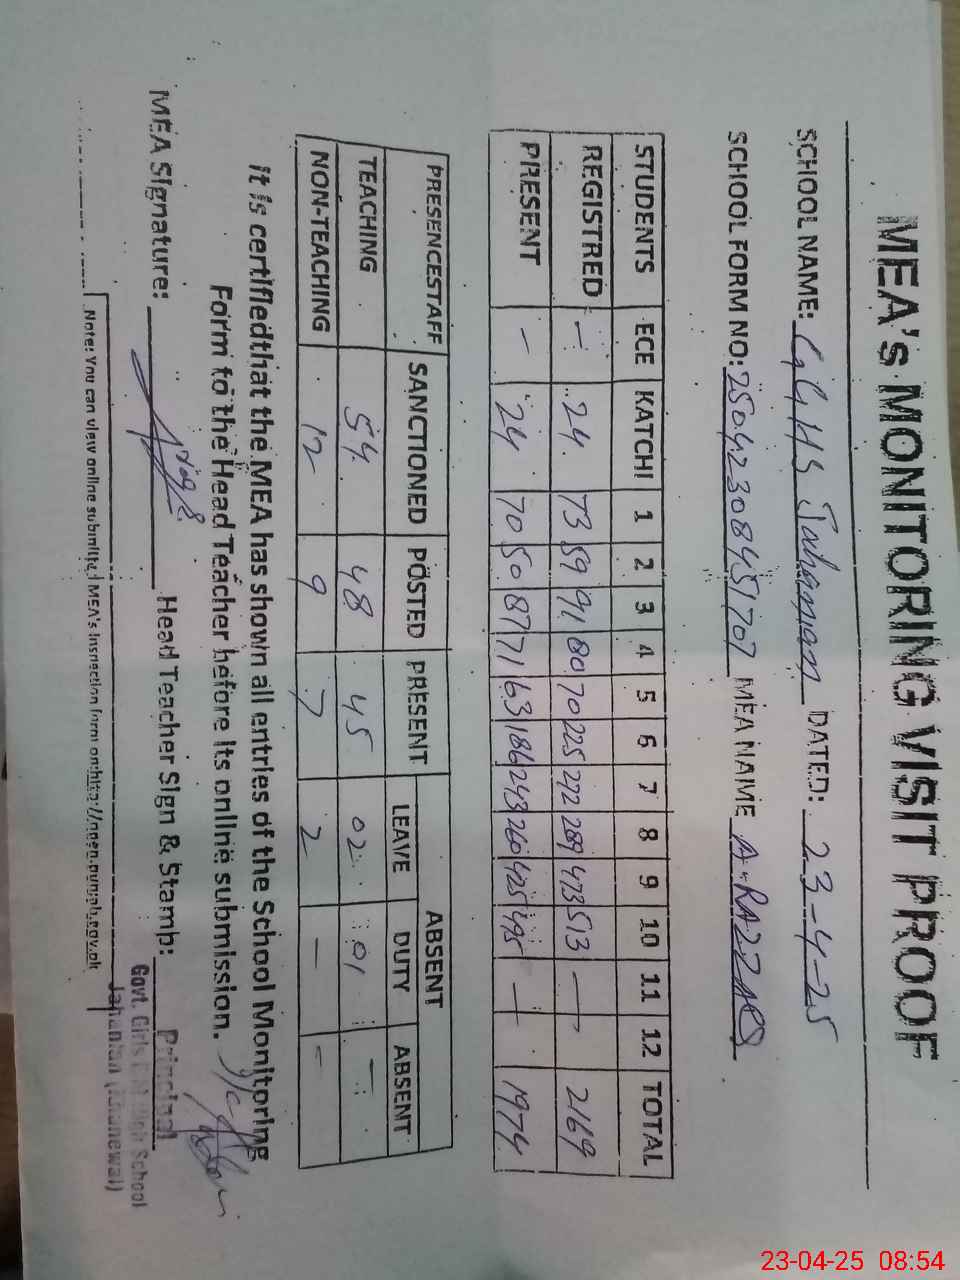 MEA's MONITORING VISIT PROOF
SCHOOL NAME: GGHS Jahanian DATED: 23-4-25
SCHOOL FORM NO: 25042308451707 MEA NAME A.RAZZAQ
STUDENTS ECE KATCHI 1 2 3 4 5 6 7 8 9 10 11 12 TOTAL
REGISTRED - 24 73 59 91 80 70 225 272 289 473 513 - 2169
PRESENT - 24 70 50 87 71 63 186 243 260 425 495 - 1974
PRESENCESTAFF SANCTIONED POSTED PRESENT ABSENT
LEAVE DUTY ABSENT
TEACHING 54 48 45 02 01 -
NON-TEACHING 12 9 7 2 - -
it is certifiedthat the MEA has shown all entries of the School Monitoring
Form to the Head Teacher before its online submission.
MEA Signature: Head Teacher Sign & Stamb:
Principal
Govt. Girls High School
Jahanian (Khanewal)
Note: You can view online submitted MEA's inspection form on:http://open.punjab.gov.pk
23-04-25 08:54